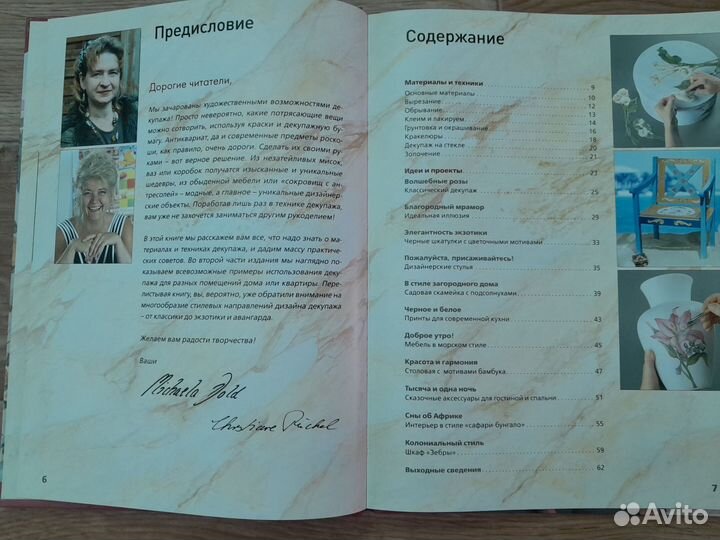 Предисловие
Дорогие читатели,
Мы зачарованы художественными возможностями де-
купажа! Просто невероятно, какие потрясающие вещи
можно сотворить, используя краски и декупажную бу-
магу. Антиквариат, да и современные предметы роско-
ши, как правило, очень дороги. Сделать их своими рука-
ми – вот верное решение. Из незатейливых мисок,
ваз или коробок получатся изысканные и уникальные
шедевры, из обыденной мебели или «сокровищ с ант-
ресолей» – модные, а главное – уникальные дизайнер-
ские объекты. Поработав лишь раз в технике декупажа,
вам уже не захочется заниматься другим рукоделием!
В этой книге мы расскажем вам все, что надо знать о ма-
териалах и техниках декупажа, и дадим массу практиче-
ских советов. Во второй части издания мы наглядно по-
казываем всевозможные примеры использования деку-
пажа для разных помещений дома или квартиры. Пере-
листывая книгу, вы, вероятно, уже обратили внимание на
многообразие стилевых направлений дизайна декупажа
– от классики до экзотики и авангарда.
Желаем вам радости творчества!
Ваши
Michaela Dold
Christiane Rückel
6
Содержание
Материалы и техники 9
Основные материалы 10
Вырезание 12
Обрывание 13
Клеим и лакируем 14
Грунтовка и окрашивание 16
Кракелюры 18
Декупаж на стекле 20
Золочение 21
Идеи и проекты 23
Волшебные розы
Классический декупаж 25
Благородный мрамор
Идеальная иллюзия 29
Элегантность экзотики
Черные шкатулки с цветочными мотивами 33
Пожалуйста, присаживайтесь!
Дизайнерские стулья 35
В стиле загородного дома
Садовая скамейка с подсолнухами 39
Черное и белое
Принты для современной кухни 43
Доброе утро!
Мебель в морском стиле 45
Красота и гармония
Столовая с мотивами бамбука 47
Тысяча и одна ночь
Сказочные аксессуары для гостиной и спальни 51
Сны об Африке
Интерьер в стиле «сафари бунгало» 55
Колониальный стиль
Шкаф «Зебры» 59
Выходные сведения 62
7
Avito